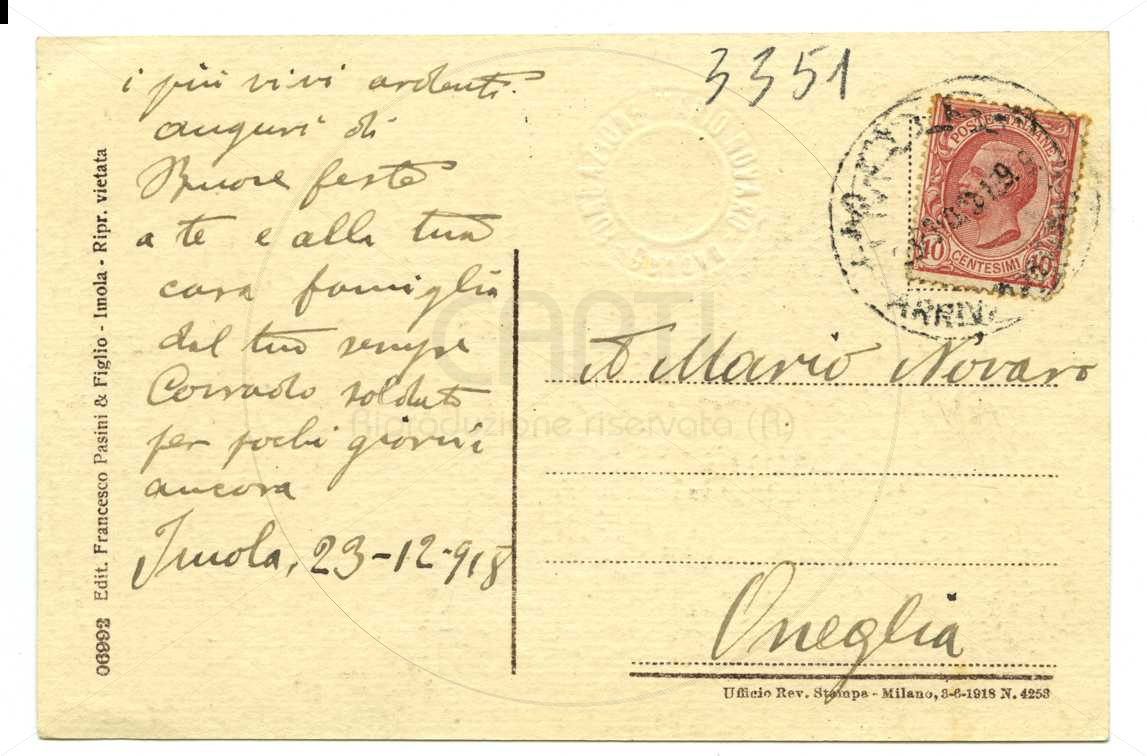 3351
i più vivi ardenti
auguri di
Buone feste
a te e alla tua
cara famiglia
dal tuo sempre
Corrado soldato
per pochi giorni
ancora
Imola, 23-12-918
POSTE ITALIANE
10 CENTESIMI 10
ARRIV
A Mario Novaro
Oneglia
06992 Edit. Francesco Pasini & Figlio - Imola - Ripr. vietata
Ufficio Rev. Stampa - Milano, 3-6-1918 N. 4253
FONDAZIONE MARIO NOVARO
Genova
CARTI
Riproduzione riservata (R)